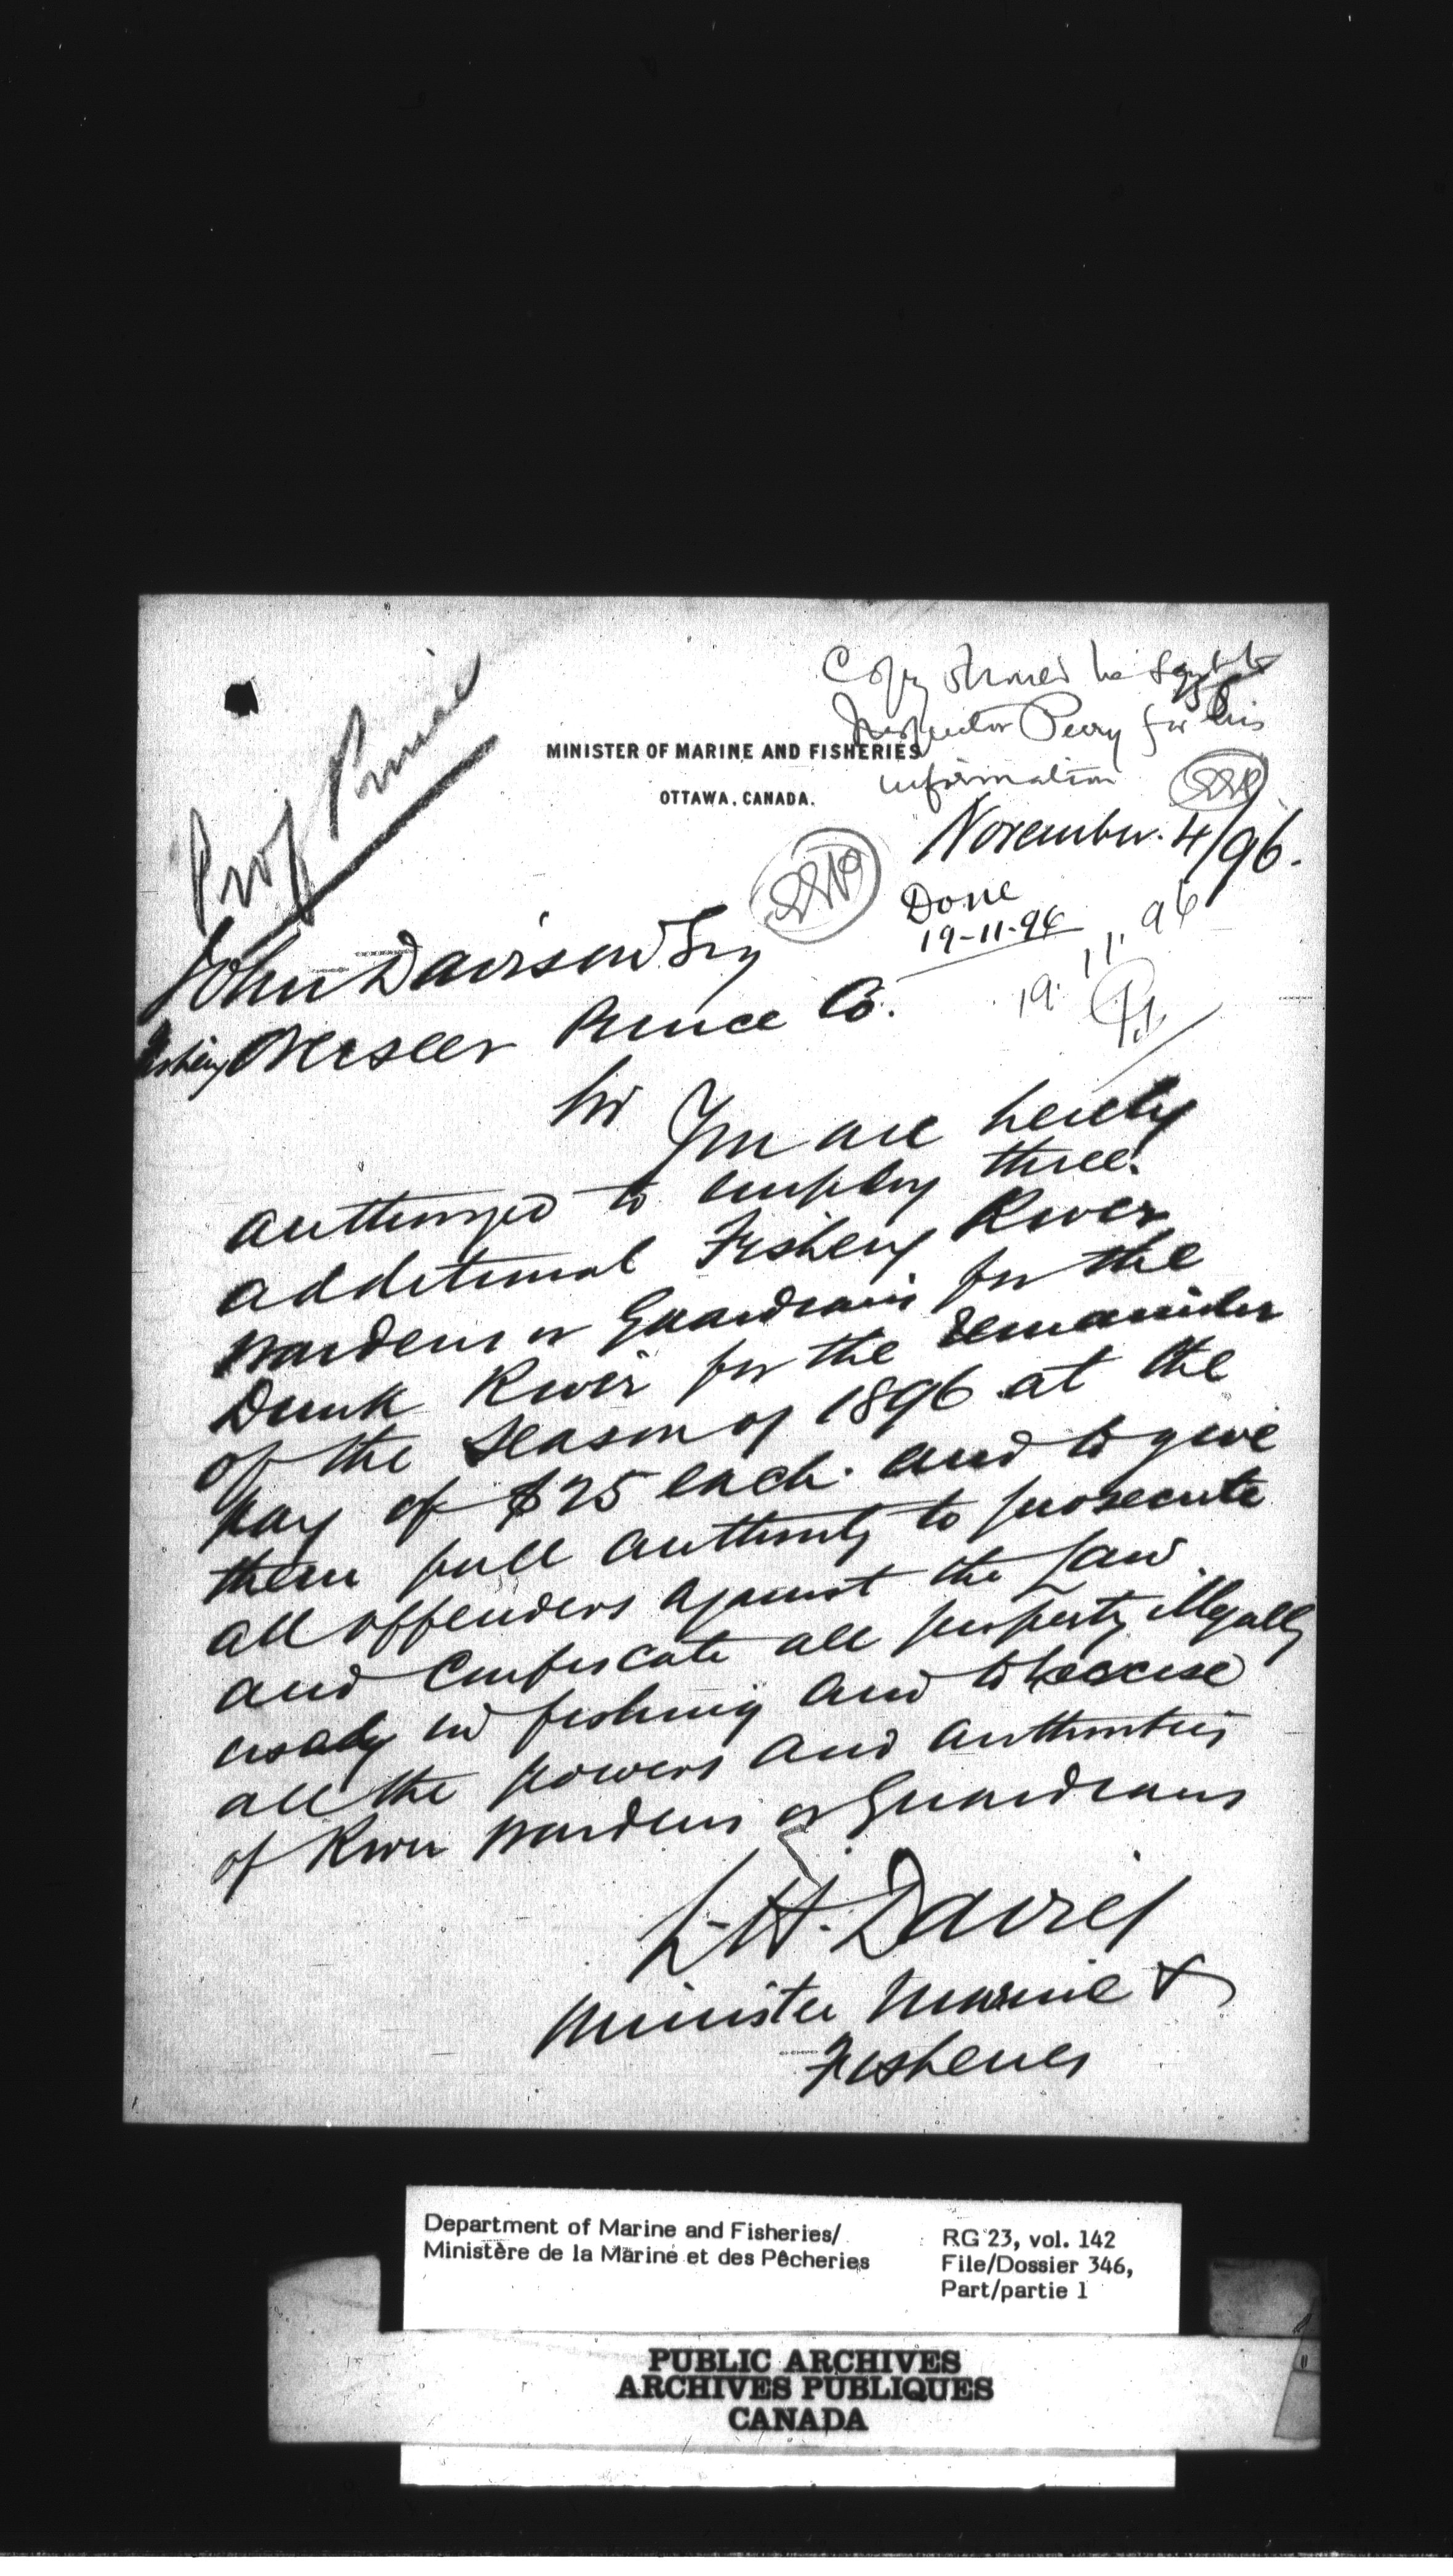 Prof Prince
Copy should be sent to
Inspector Perry for his
information
MINISTER OF MARINE AND FISHERIES
OTTAWA, CANADA.
November 4/96.
Done
19-11-96
19.11.96
John Davison Esq
Fishery Overseer Prince Co.
Sir You are hereby
authorized to employ three
additional Fishery River
wardens or Guardians for the
Dunk River for the remainder
of the season of 1896 at the
pay of $25 each and to give
them full authority to prosecute
all offenders against the Law
and Confiscate all property illegally
used in fishing and to exercise
all the powers and authorities
of River wardens or Guardians
L H. Davies
Minister Marine &
Fisheries
Department of Marine and Fisheries/
Ministère de la Marine et des Pêcheries
RG 23, vol. 142
File/Dossier 346,
Part/partie 1
PUBLIC ARCHIVES
ARCHIVES PUBLIQUES
CANADA